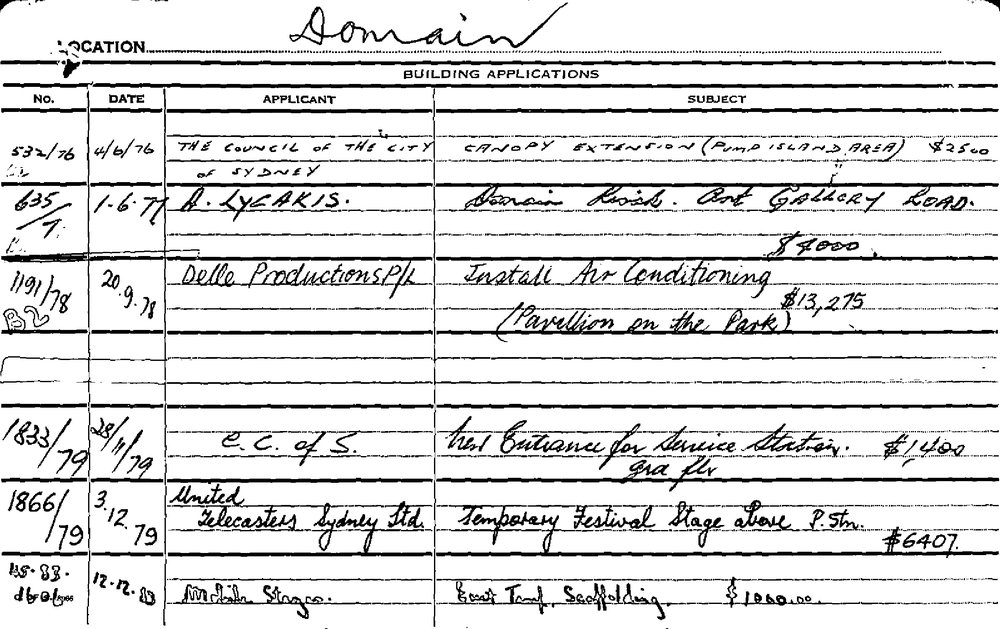 Domain
LOCATION
BUILDING APPLICATIONS
NO. DATE APPLICANT SUBJECT
532/76 4/6/76 THE COUNCIL OF THE CITY CANOPY EXTENSION (PUMP ISLAND AREA) $2500
OF SYDNEY
635/7 1.6.77 A. LYCAKIS. Domain Kiosk. Art GALLERY ROAD.
$4000.
1191/78 20.9.78 Delle Productions P/L Install Air Conditioning
B2 $13,275
(Pavellion on the Park)
1833/79 28/11/79 C.C. of S. New Entrance for Service Station. $1,400
gra flr
1866/79 3.12.79 United
Telecasters Sydney Ltd. Temporary Festival Stage above P. Stn.
$6407.
12.12.83 Mobile Stages. Erect Temp. Scaffolding. $1000.00.